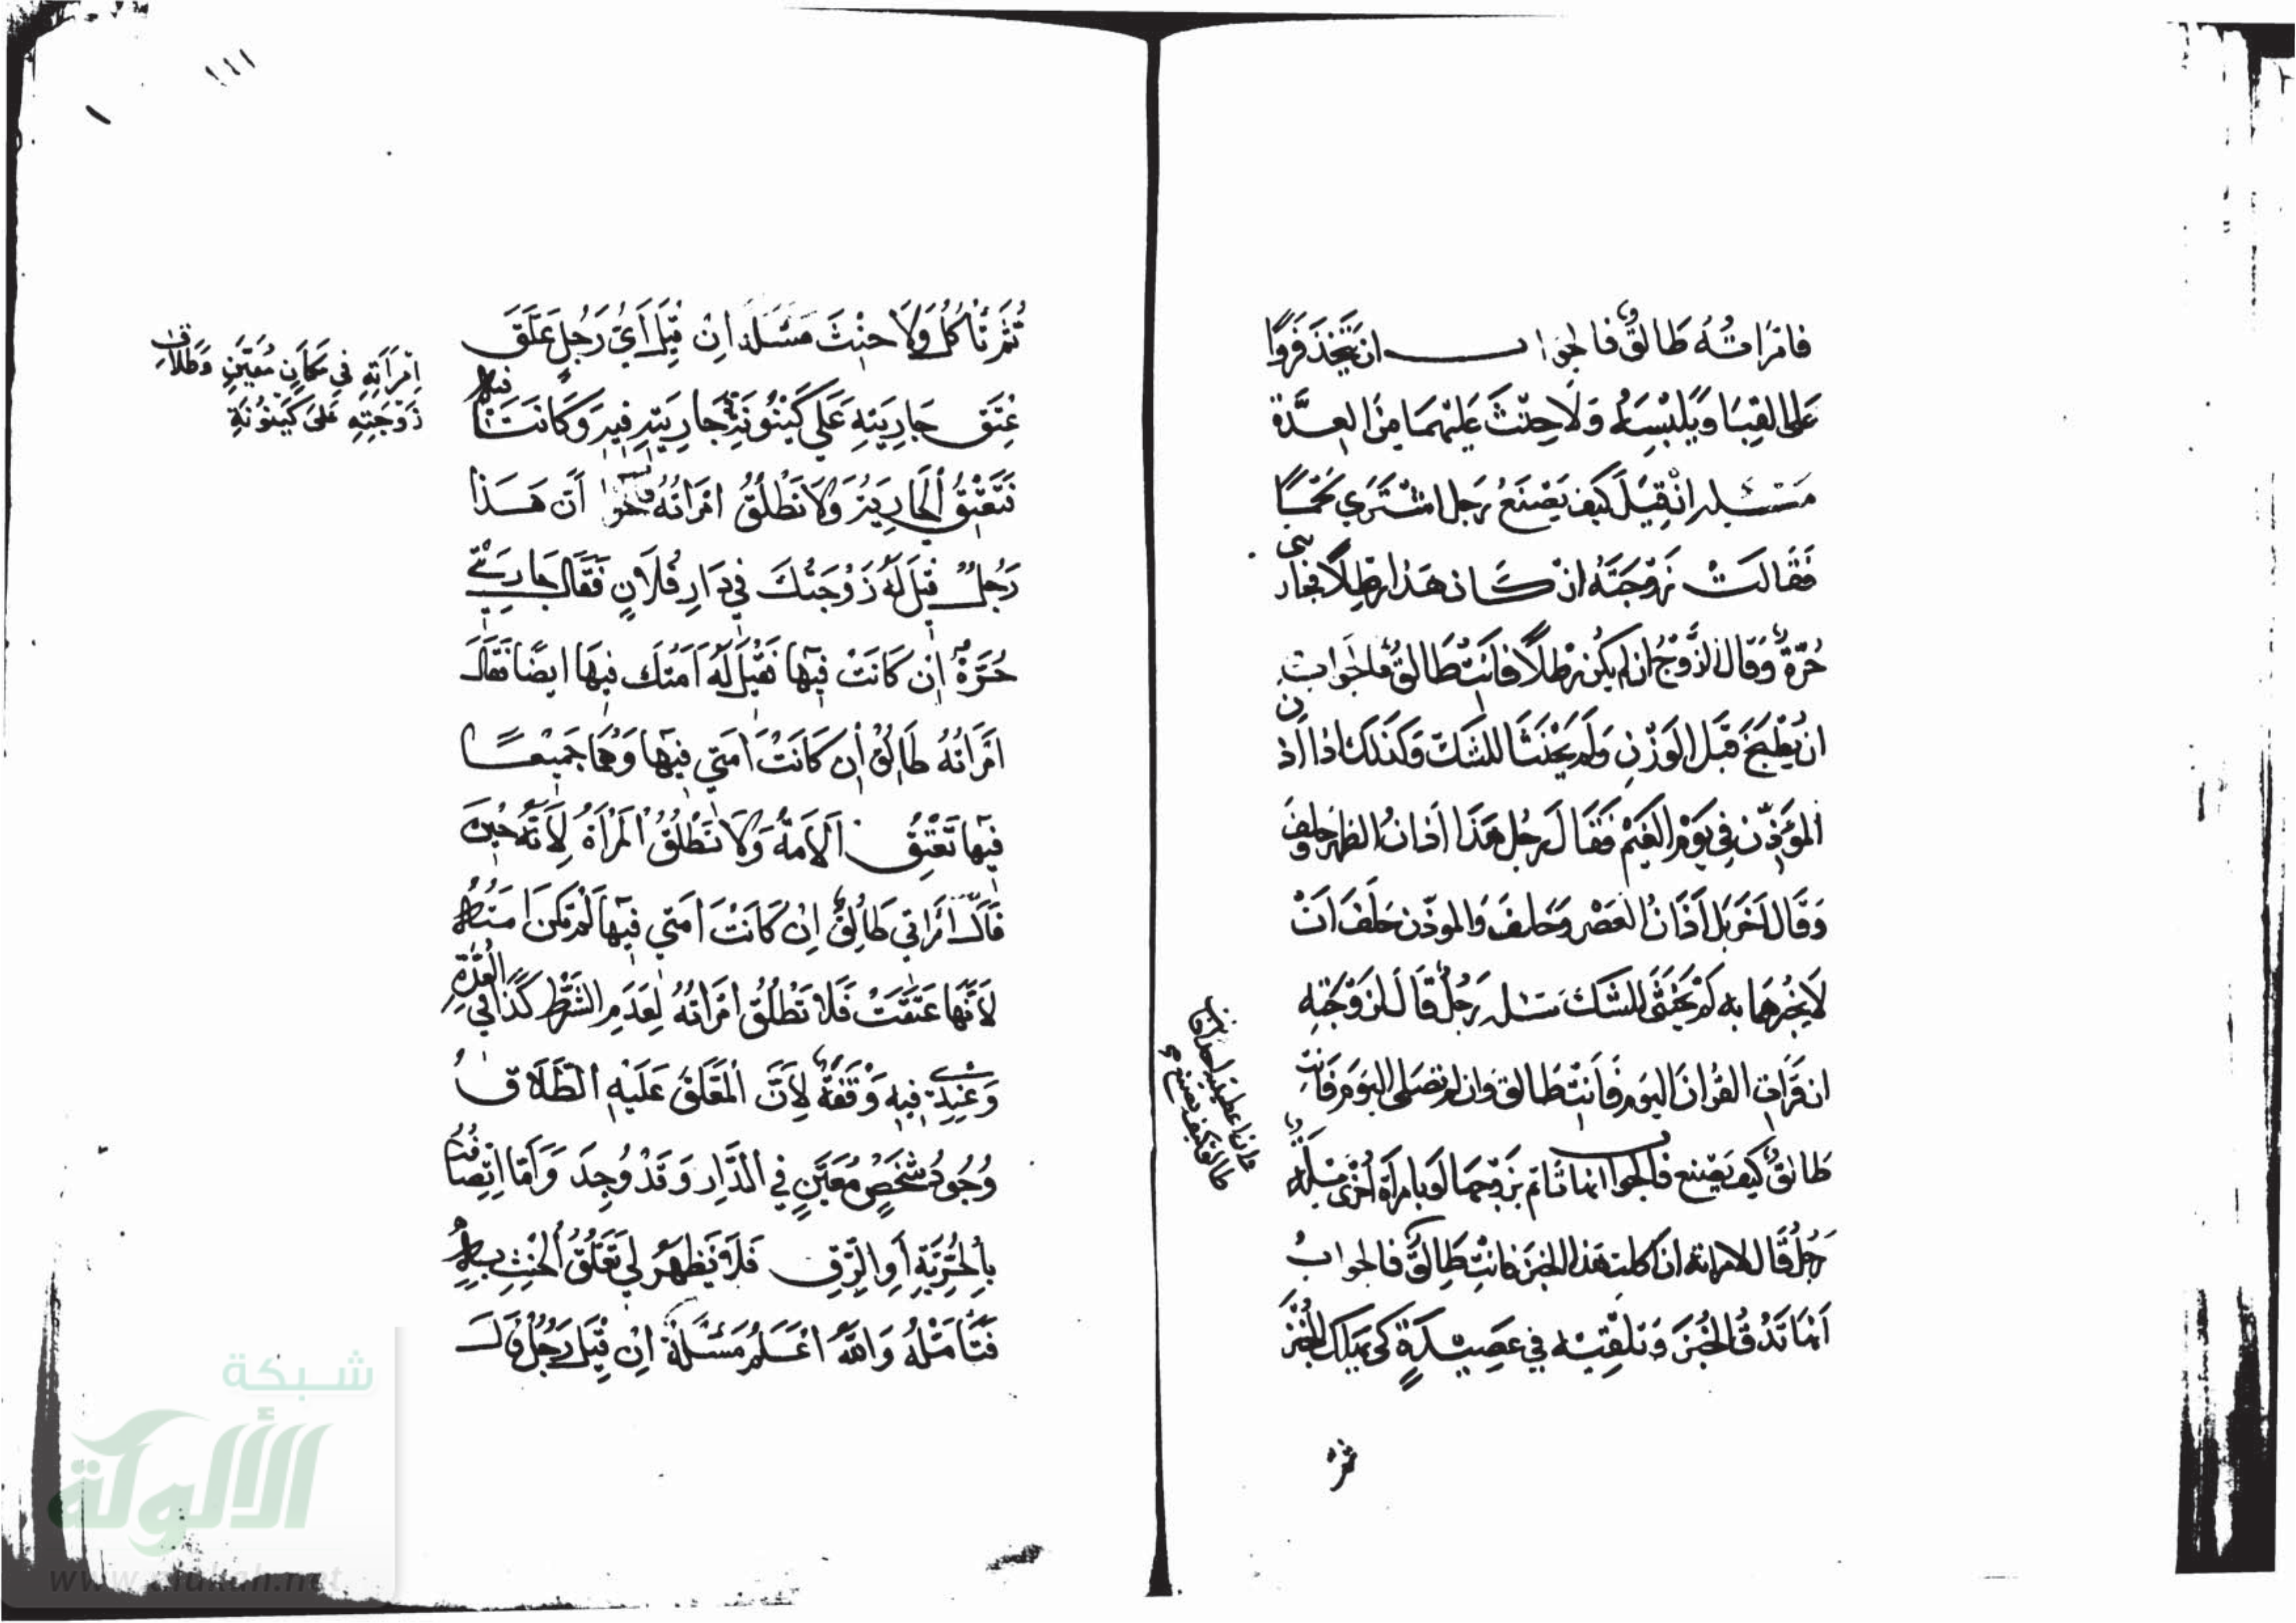 فامراته طالق فالجواب ان يتخذ فروا
على القبا ويلبسه ولا حنث عليهما من العدة
مسئلة ان قيل كيف يصنع رجل اشترى لحما
فقالت زوجته ان كان هذا رطلا فجاريتي
حرة وقال الزوج ان لم يكن رطلا فانت طالق فالجواب
ان يطبخ قبل الوزن ولم يحنثا للشك وكذلك اذا اذن
المؤذن في يوم الغيم فقال رجل هذا اذان الظهر وحلف
وقال اخر بل اذان العصر وحلف والموذن حلف ان
لا يخبرهما به لم يحنثن للشك مسئلة رجل قال لزوجته
ان قرات القران اليوم فانت طالق وان لم تصلي اليوم فانت
طالق كيف يصنع فالجواب انها تاتم بزوجها او بامراة اخرى مسئلة
رجل قال لامراته ان اكلت هذا الخبز فانت طالق فالجواب
انها تدق الخبز وتلقيه في عصيدة كي يهلك الخبز
ثم
طالق فكيف يصنع
١١١
ثم تاكل ولا حنث مسئلة ان قيل اي رجل علق
عتق جاريته على كينونة جاريته فيه وكانتا فيه
تعتق الجارية ولا تطلق امراته فالجواب ان هذا
رجل قيل له زوجتك في دار فلان فقال جاريتي
حرة ان كانت فيها فقيل له امتك فيها ايضا فقال
امراته طالق ان كانت امتي فيها وهما جميعا
فيها تعتق الامة ولا تطلق المراة لانه حين
قال امراتي طالق ان كانت امتي فيها لم تكن امته
لانها عتقت فلا تطلق امراته لعدم الشرط كذا في العدة
وعندي فيه وقفة لان المعلق عليه الطلاق
وجود شخص معين في الدار وقد وجد واما اتصافه
بالحرية او الرق فلا يظهر لي تعلق الحنث به
فتامله والله اعلم مسئلة ان قيل رجل قال
امراته في مكان معين وطلاق
زوجته على كينونة
شبكة
الألوكة
www.alukah.net